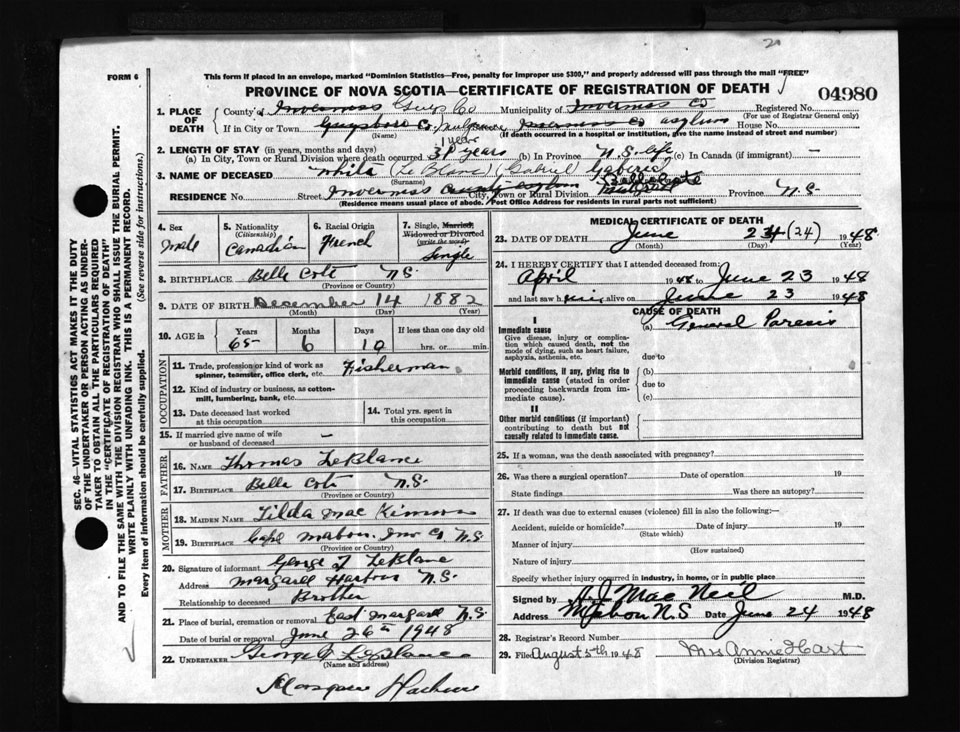 FORM 6
This form if placed in an envelope, marked "Dominion Statistics—Free, penalty for improper use $300," and properly addressed will pass through the mail "FREE"
PROVINCE OF NOVA SCOTIA—CERTIFICATE OF REGISTRATION OF DEATH
04980
1. PLACE OF DEATH
County of Inverness Guys Co Municipality of Inverness Co Registered No.
(For use of Registrar General only)
If in City or Town Guysboro Co. asylum House No.
(Name) (If death occurred in a hospital or institution, give the name instead of street and number)
1 year
2. LENGTH OF STAY (in years, months and days)
(a) In City, Town or Rural Division where death occurred 31 years (b) In Province N.S. life (c) In Canada (if immigrant) —
3. NAME OF DECEASED White (LeBlanc) (Gabriel
(Surname)
RESIDENCE No. Street Inverness County asylum City, Town or Rural Division Belle Cote Province N.S.
(Residence means usual place of abode. Post Office Address for residents in rural parts not sufficient)
4. Sex
Male
5. Nationality
(Citizenship)
Canadian
6. Racial Origin
French
7. Single, Married, Widowed or Divorced
(write the word)
Single
8. BIRTHPLACE Belle Cote N.S.
(Province or Country)
9. DATE OF BIRTH December 14 1882
(Month) (Day) (Year)
10. AGE in
Years Months Days If less than one day old
65 6 10 hrs. or min.
OCCUPATION
11. Trade, profession or kind of work as spinner, teamster, office clerk, etc. Fisherman
12. Kind of industry or business, as cotton-mill, lumbering, bank, etc.
13. Date deceased last worked at this occupation
14. Total yrs. spent in this occupation
15. If married give name of wife or husband of deceased —
FATHER
16. NAME Thomas LeBlanc
17. BIRTHPLACE Belle Cote N.S.
(Province or Country)
MOTHER
18. MAIDEN NAME Tilda Mac Kinnon
19. BIRTHPLACE Cape Mabou. Inv Co. N.S
(Province or Country)
20. Signature of informant George T LeBlanc
Address Margaree Harbour N.S.
Relationship to deceased Brother
21. Place of burial, cremation or removal East Margaree N.S
Date of burial or removal June 26th 1948
22. UNDERTAKER George T LeBlanc
(Name and address)
Margaree Harbour
MEDICAL CERTIFICATE OF DEATH
23. DATE OF DEATH June 24 (24) 1948
(Month) (Day) (Year)
24. I HEREBY CERTIFY that I attended deceased from:
April 1948 to June 23 1948
and last saw him alive on June 23 1948
CAUSE OF DEATH
I
Immediate cause
Give disease, injury or complication which caused death, not the mode of dying, such as heart failure, asphyxia, asthenia, etc.
(a) General Paresis
due to
Morbid conditions, if any, giving rise to immediate cause (stated in order proceeding backwards from immediate cause).
(b)
due to
(c)
II
Other morbid conditions (if important) contributing to death but not causally related to immediate cause.
25. If a woman, was the death associated with pregnancy?
26. Was there a surgical operation? Date of operation 19
State findings Was there an autopsy?
27. If death was due to external causes (violence) fill in also the following:—
Accident, suicide or homicide? Date of injury 19
(State which)
Manner of injury
(How sustained)
Nature of injury
Specify whether injury occurred in industry, in home, or in public place
Signed by A J Mac Neil M.D.
Address Mabou N.S Date June 24 1948
28. Registrar's Record Number
29. Filed August 5th 1948 Mrs Annie Hart
(Division Registrar)
SEC. 46—VITAL STATISTICS ACT MAKES IT THE DUTY
OF THE UNDERTAKER OR PERSON ACTING AS UNDER-
TAKER TO OBTAIN ALL THE PARTICULARS REQUIRED
IN THE "CERTIFICATE OF REGISTRATION OF DEATH"
AND TO FILE THE SAME WITH THE DIVISION REGISTRAR WHO SHALL ISSUE THE BURIAL PERMIT.
WRITE PLAINLY WITH UNFADING INK. THIS IS A PERMANENT RECORD.
Every item of information should be carefully supplied. (See reverse side for instructions.)